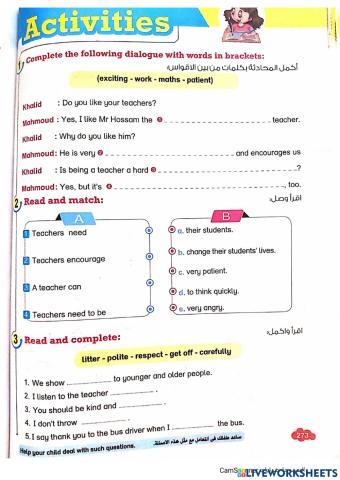 Activities
1 Complete the following dialogue with words in brackets:
أكمل المحادثة بكلمات من بين الأقواس:
(exciting - work - maths - patient)
Khalid : Do you like your teachers?
Mahmoud : Yes, I like Mr Hossam the 1 ______ teacher.
Khalid : Why do you like him?
Mahmoud : He is very 2 ______ and encourages us
Khalid : Is being a teacher a hard 3 ______?
Mahmoud : Yes, but it's 4 ______, too.
2 Read and match:
اقرأ وصل:
A B
1 Teachers need
a. their students.
b. change their students' lives.
2 Teachers encourage
c. very patient.
3 A teacher can
d. to think quickly.
4 Teachers need to be
e. very angry.
3 Read and complete:
اقرأ واكمل:
litter - polite - respect - get off - carefully
1. We show ______ to younger and older people.
2. I listen to the teacher ______.
3. You should be kind and ______.
4. I don't throw ______.
5. I say thank you to the bus driver when I ______ the bus.
Help your child deal with such questions.
ساعد طفلك في التعامل مع مثل هذه الأسئلة.
273
CamS
LIVEWORKSHEETS